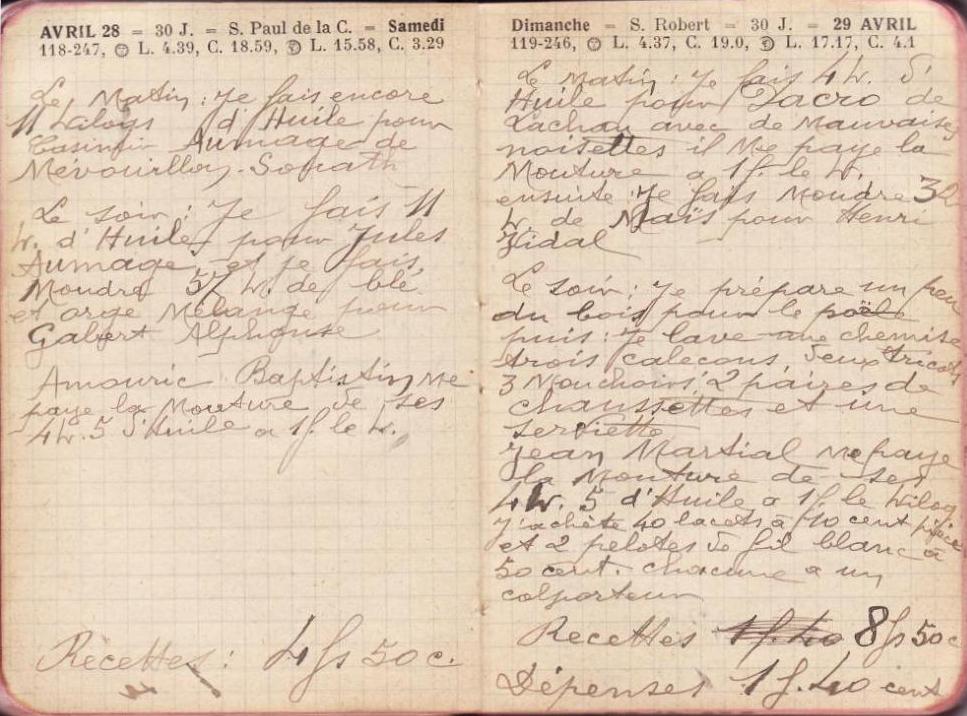 AVRIL 28 = 30 J. = S. Paul de la C. = Samedi
118-247, L. 4.39, C. 18.59, L. 15.58, C. 3.29
Le Matin : Je fais encore
11 kilogs d'Huile pour
Aumage de
Mévouillon-
Le soir : Je fais 11
k. d'Huile pour Jules
Aumage et je fais
Moudre 57 k. de blé
et orge Mélange pour
Galbert Alphonse
Amouric Baptistin me
paye la Mouture de ses
4 k. 5 d'Huile a 1f. le k.
Recettes : 4 fs 50 c.
Dimanche = S. Robert = 30 J. = 29 AVRIL
119-246, L. 4.37, C. 19.0, L. 17.17, C. 4.1
Le Matin : Je fais 4 k. d'
Huile pour de
Lachau avec de Mauvaises
noisettes il Me paye la
Mouture a 1f. le k.
ensuite : Je fais Moudre 32
k. de Maïs pour Henri
Vidal
Le soir : Je prépare un peu
du bois pour le poële
puis : Je lave une chemise
trois calecons deux tricots
3 Mouchoirs, 2 paires de
chaussettes et une
serviette
Jean Martial me paye
la Mouture de ses
4 k. 5 d'Huile a 1f le kilog
J'achète 40 lacets à 10 cent pièce
et 2 pelotes de fil blanc a
50 cent. chacune a un
colporteur
Recettes 1f.40 8 fs 50 c
Dépenses 1f.40 cent